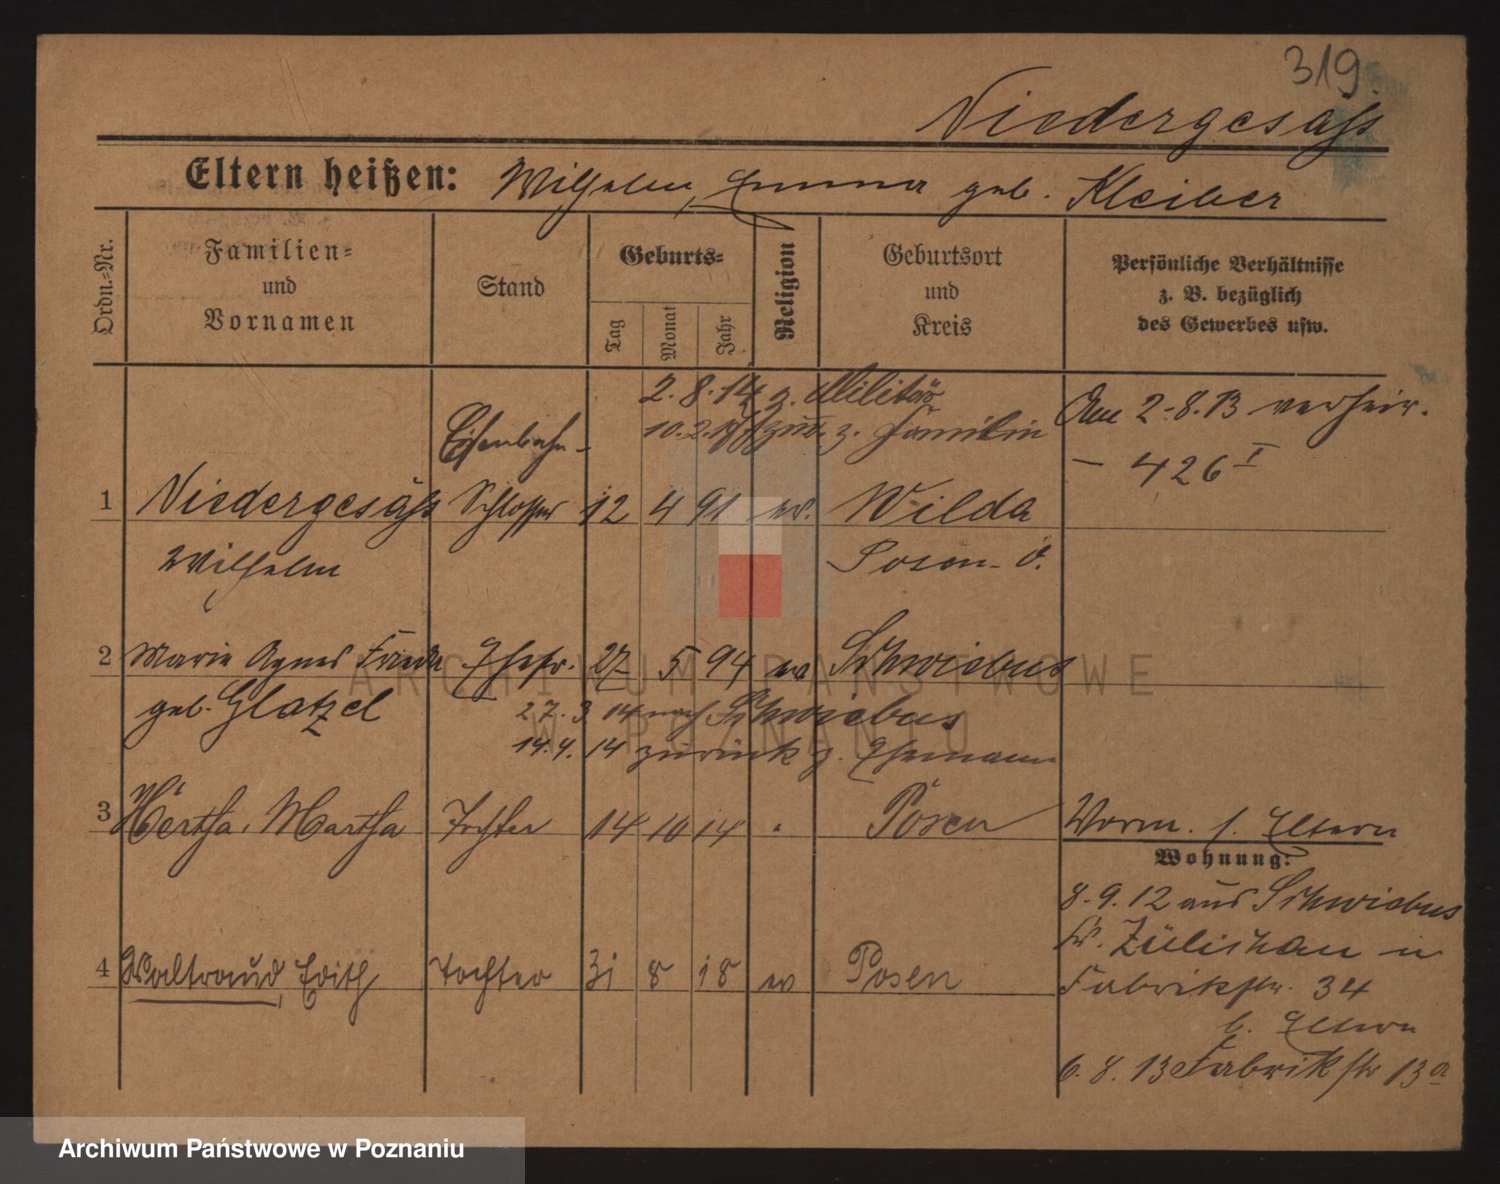 319.
Niedergesäss
Eltern heißen: Wilhelm, Emma geb. Kleiber
Ordn.-Nr.
Familien-
und
Vornamen
Stand
Geburts-
Tag
Monat
Jahr
Religion
Geburtsort
und
Kreis
Persönliche Verhältnisse
z. B. bezüglich
des Gewerbes usw.
2.8.14 z. Militär
10.2. zur. z. Familie
Am 2.8.13 verheir.
- 426 I
Eisenbahn-
1 Niedergesäss Schlosser 12 4 91 ev. Wilda
Wilhelm Posen-O.
2 Marie Agnes Frieda Ehefr. 27 5 94 ev Schwiebus
geb. Glatzel 27.3 14 nach Schwiebus
14.4.14 zurück z. Ehemann
3 Hertha, Martha Tochter 14 10 14 Posen
Worm. s. Eltern
Wohnung:
8.9.12 aus Schwiebus
Kr. Züllichau in
Fabrikstr. 34
b. Eltern
6.8.13 Fabrikstr 13a
4 Waltraud, Edith Tochter 31 8 18 ev Posen
ARCHIWUM PAŃSTWOWE
W POZNANIU
Archiwum Państwowe w Poznaniu